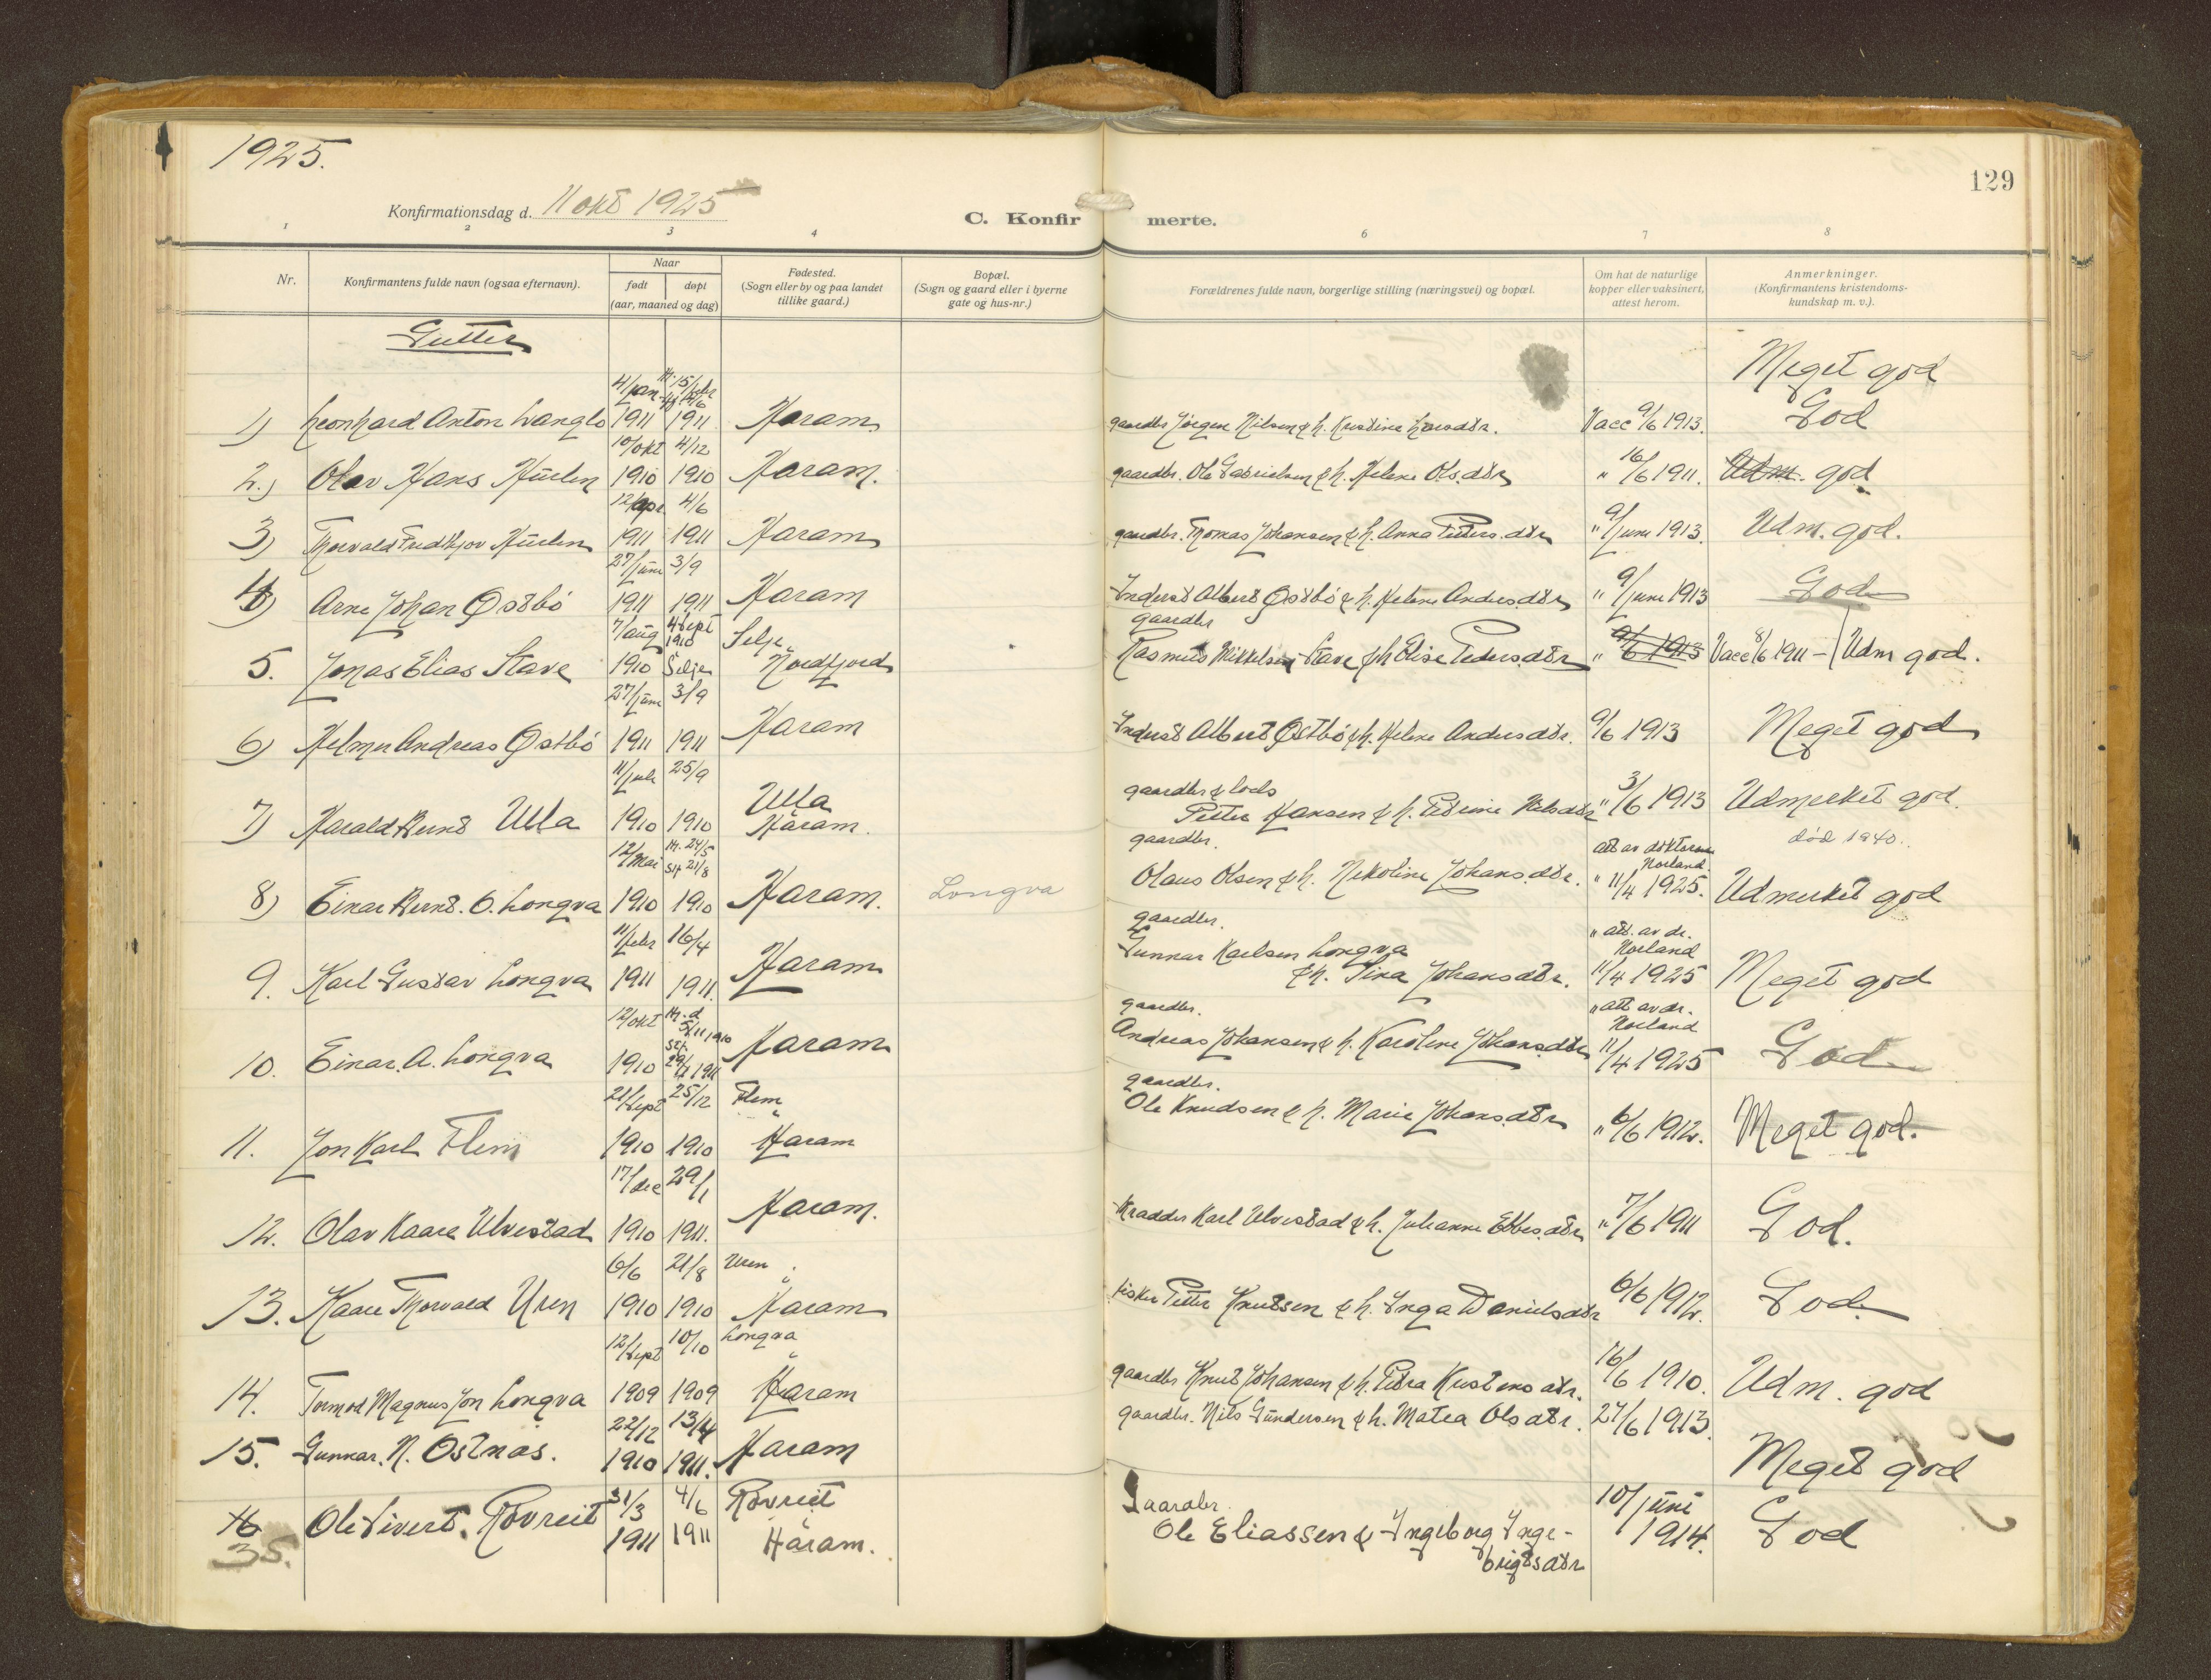 1925.
129
Konfirmationsdag d. 11 okt 1925
C. Konfirmerte.
1 2 3 4 6 7 8
Nr.
Konfirmantens fulde navn (ogsaa efternavn).
Naar
født døpt
(aar, maaned og dag)
Fødested.
(Sogn eller by og paa landet
tillike gaard.)
Bopæl.
(Sogn og gaard eller i byerne
gate og hus-nr.)
Forældrenes fulde navn, borgerlige stilling (næringsvei) og bopæl.
Om hat de naturlige
kopper eller vaksinert,
attest herom.
Anmerkninger.
(Konfirmantens kristendoms-
kundskap m. v.).
Gutter
Meget god
4/jan 15/febr
1) Leonhard Anton Longlo 1911 1911 Haram gaardbr Jørgen Nilsen & h. Kristine Larsdtr. Vacc 9/6 1913. God
10/okt 4/12
2.) Olav Hans Hurlen 1910 1910 Haram. gaardbr. Ole Gabrielsen & h. Helene Ols.dtr " 16/6 1911. Udm. god
12/apr 4/6
3) Thorvald Fridthjov Hurlen 1911 1911 Haram gaardbr. Thomas Johansen & h. Anna Petters.dtr " 9/juni 1913. Udm. god.
27/juni 3/9
4) Arne Johan Østbö 1911 1911 Haram Inderst Albert Østbö & h. Helene Anders.dtr " 9/juni 1913 God
7/aug 4 Sept 1910 Selje gaardbr
5. Jonas Elias Stave 1910 Selje Nordfjord Rasmus Mikkelsen Stave & h Elise Peders.dtr " 9/6 1913 Vacc 8/6 1911 - Udm god.
27/juni 3/9
6) Helmer Andreas Østbö 1911 1911 Haram Inderst Albert Østbö & h. Helene Andersdtr. 9/6 1913 Meget god
11/juli 25/9 Ulla gaardbr & lods
7) Harald Bernt Ulla 1910 1910 Haram. Petter Hansen & h. Petrine Nilsdtr " 3/6 1913 Udmerket god.
død 1940.
12/mai 24/5 21/8 gaardbr. att av doktoren Norland
8) Einar Bernt. O. Longva 1910 1910 Haram. Longva Olaus Olsen & h. Nikoline Johans.dtr. " 11/4 1925. Udmerket god
11/febr 16/4 gaardbr. " att. av dr. Norland
9. Karl Gustav Longva 1911 1911. Haram Gunnar Karlsen Longva
& h. Tina Johansdtr. 11/4 1925 Meget god
12/okt 5/11 1910 gaardbr. " att av dr. Norland
10. Einar. A. Longva 1910 1911 Haram Andreas Johansen & h. Karoline Johans.dtr 11/4 1925 God
21/sept 25/12 Flem gaardbr.
11. Jon Karl Flem 1910 1910 Haram Ole Knudsen & h. Marie Johans.dtr " 6/6 1912. Meget god.
17/dec 29/1
12. Olav Kaare Ulvestad 1910 1911. Haram. Kradder Karl Ulvestad & h. Johanne Ebbes.dtr " 7/6 1911 God.
6/6 21/8 Uren
13. Kaare Thorvald Uren 1910 1910 Haram fisker Petter Knutsen & h. Inga Danielsdtr 6/6 1912. God.
12/sept 10/10 Longva
14. Tormod Magnus Jon Longva 1909 1909 Haram gaardbr Knut Johansen & h. Petra Kristens dtr. 16/6 1910. Udm. god
22/12 13/4
15. Gunnar. N. Ostnas. 1910 1911. Haram gaardbr. Nils Gundersen & h. Matea Ols dtr. 27/6 1913. Meget god
31/3 4/6 Rovreit Gaardbr. 10/juni
16 Ole Sivert. Rovreit 1911 1911 Haram. Ole Eliassen & Ingeborg Inge-
brigtsdtr 1914. God
35.